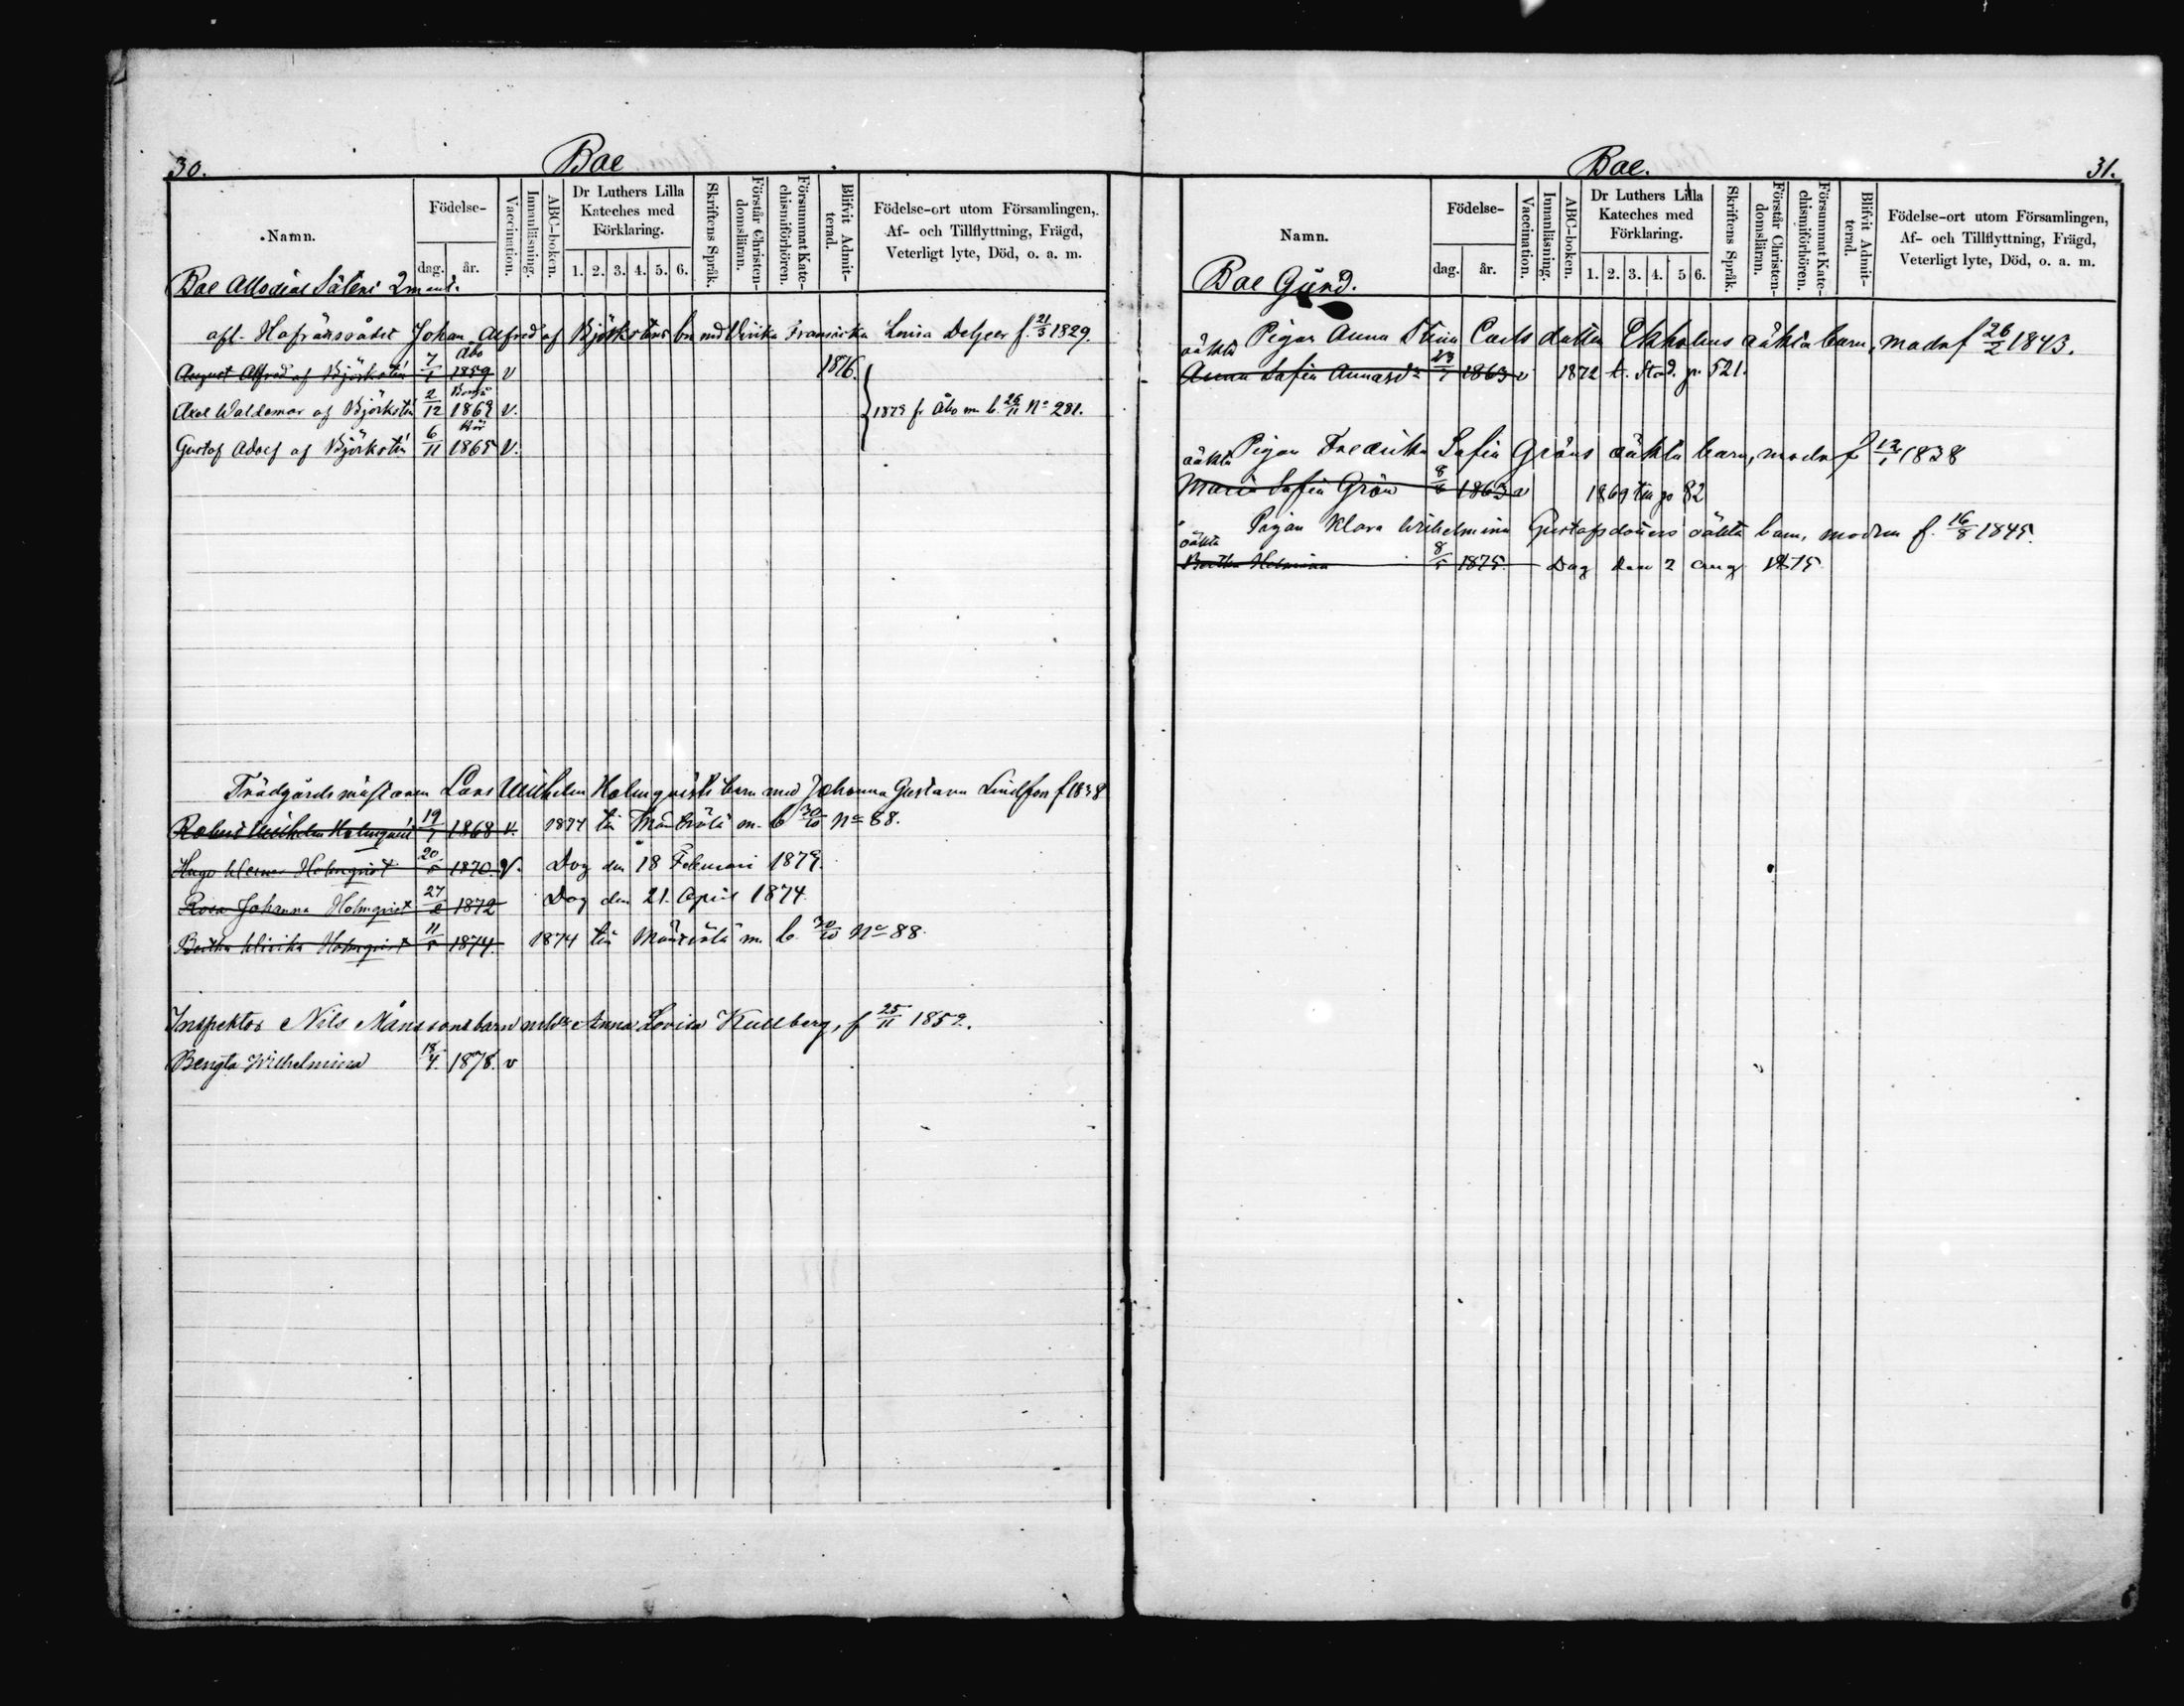 30.
Boe
Namn.
Födelse-
dag.
år.
Vaccination.
Innanläsning.
ABC-boken.
Dr Luthers Lilla
Kateches med
Förklaring.
1. 2. 3. 4. 5. 6.
Skriftens Språk.
Förstår Christen-
domsläran.
Försummat Kate-
chismiförhören.
Blifvit Admit-
terad.
Födelse-ort utom Församlingen,
Af- och Tillflyttning, Frägd,
Veterligt lyte, Död, o. a. m.
Boe Allodial Säteri 2 mant.
afl. Hofrättsrådet Johan Alfred af Björkstens bn med Ulrika Fransiska Lovisa DeGeer f. 21/3 1829.
August Alfred af Björkstén 7/1 Åbo 1859 v 1876.
Axel Waldemar af Björkstén 2/12 Borgå 1862 v. 1879 fr Åbo m. b. 26/11 No 281.
Gustaf Adolf af Björkstén 6/11 1865 v.
Trädgårdsmästaren Lars Wilhelm Holmqvists barn med Johanna Gustava Lindfors f 1838
Robert Wilhelm Holmqvist 19/7 1868 v. 1874 till Mäntsälä m. b 30/10 No 88.
Hugo Werner Holmqvist 20/5 1870. v. Dog den 18 Februari 1879.
Rosa Johanna Holmqvist 27/2 1872 Dog den 21. April 1874.
Bertha Ulrika Holmqvist 11/5 1874. 1874 till Mäntsälä m. b. 30/10 No 88.
Inspektor Nils Månssons barn m. Anna Lovisa Kullberg, f 25/11 1852.
Bengta Wilhelmina 18/4. 1878. v
Boe.
31.
Namn.
Födelse-
dag.
år.
Vaccination.
Innanläsning.
ABC-boken.
Dr Luthers Lilla
Kateches med
Förklaring.
1. 2. 3. 4. 5 6.
Skriftens Språk.
Förstår Christen-
domsläran.
Försummat Kate-
chismiförhören.
Blifvit Admit-
terad.
Födelse-ort utom Församlingen,
Af- och Tillflyttning, Frägd,
Veterligt lyte, Död, o. a. m.
Boe Gård.
Pigan Anna Stina Carlsdotter Ekholms oäkta barn, modn f 26/2 1843.
oäkta
Anna Sofia Annasdr 1863 v 1872 t. Stad. p. 521.
Pigan Fredrika Sofia Gröns oäkta barn, modn f 12/1 1838
oäkta
Maria Sofia Grön 8/6 1863 v 1869 till p 82
Pigan Klara Wilhelmina Gustafsdotters oäkta barn, modren f. 16/8 1845.
oäkta
Bertha Helmina 8/5 1875. Dog den 2 Aug 1875